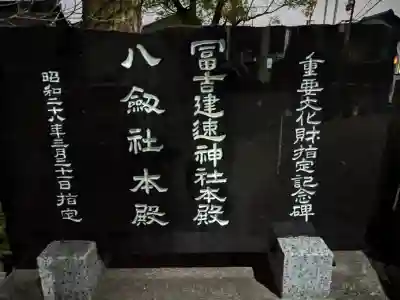 重要文化財指定記念碑
冨吉建速神社本殿
八劔社本殿
昭和二十八年三月三十一日指定